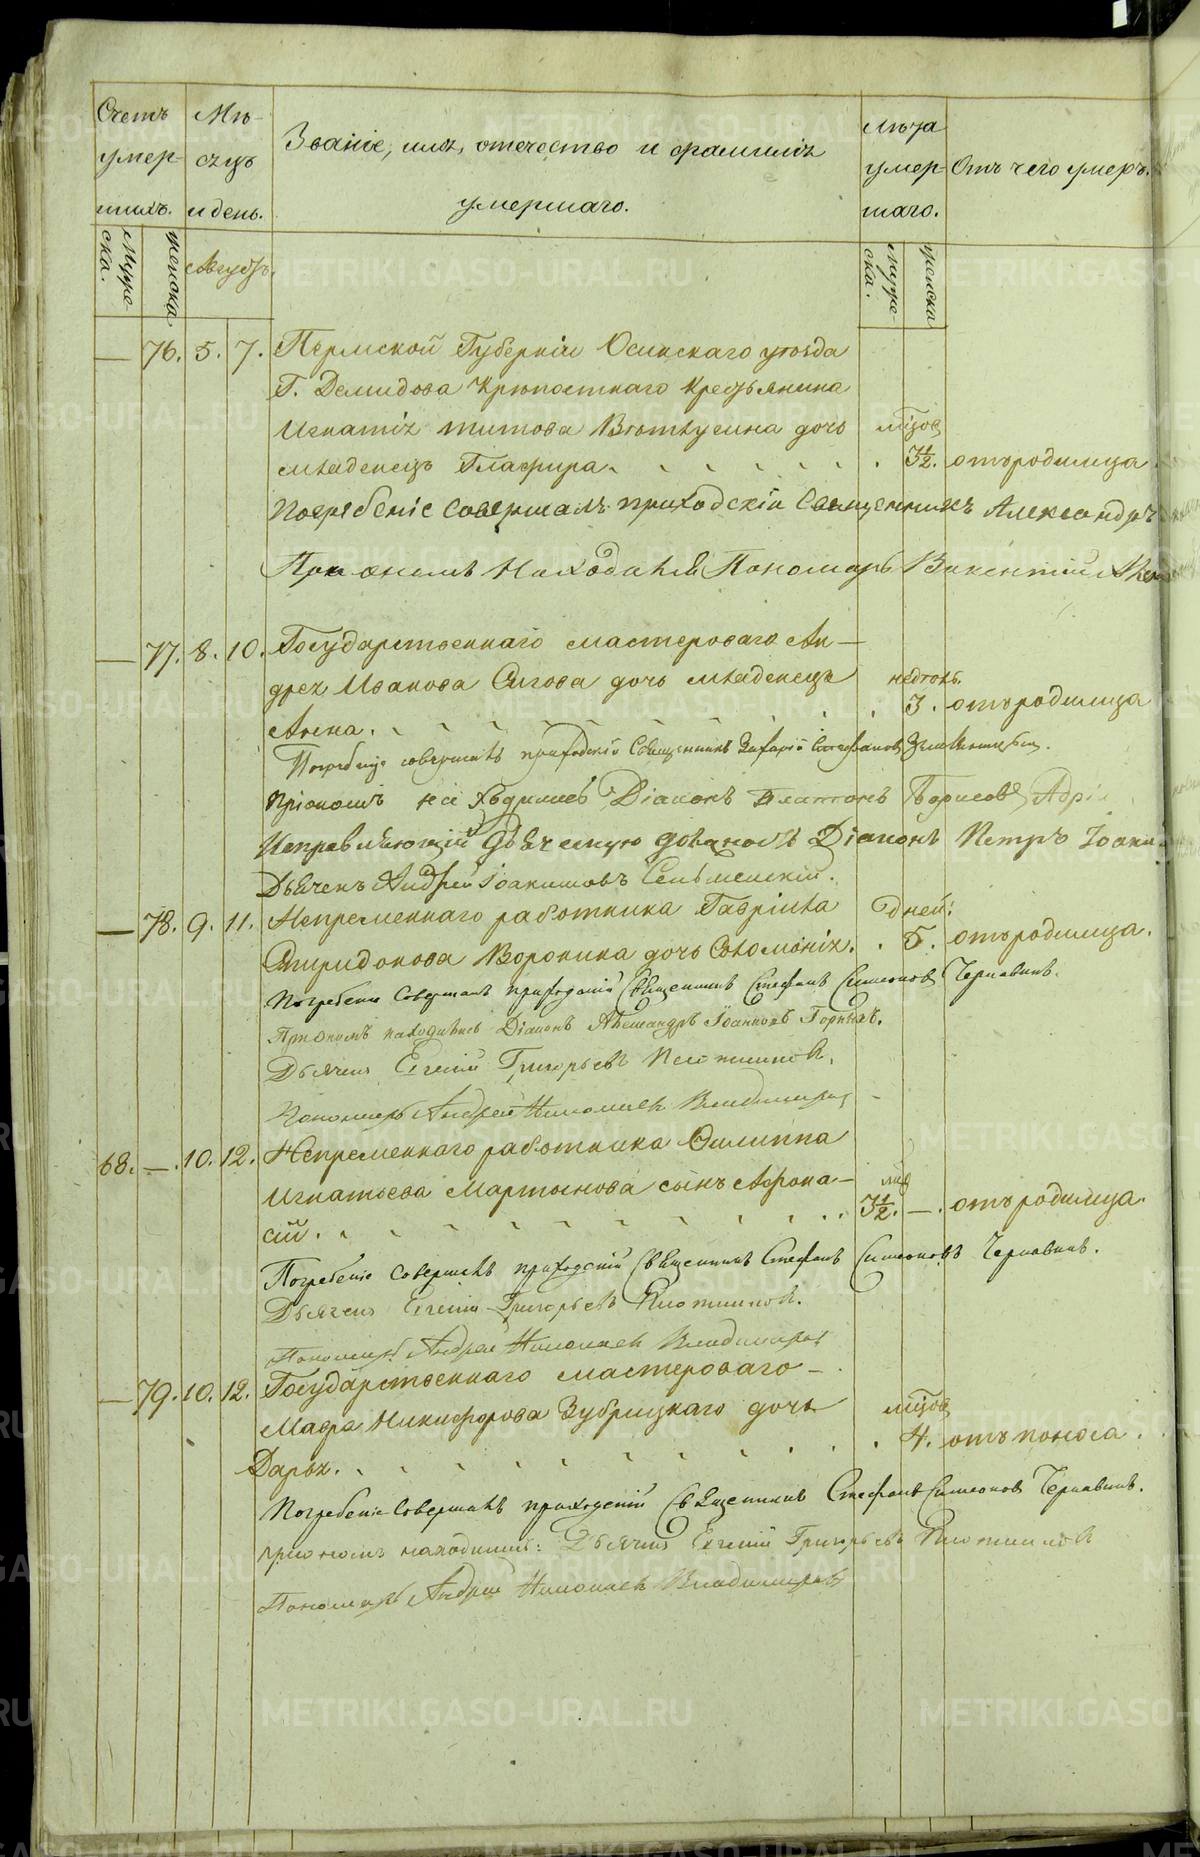 Счетъ умер- шихъ.
Мѣ- сяцъ и день.
Званіе, имя, отечество и фамилія умершаго.
Лѣта умер- шаго.
Отъ чего умеръ.
Мужеска.
женска
Августъ.
мужеска.
женска
— 76. 5. 7. Пермской Губерніи Осинскаго уѣзда
Г. Демидова Крѣпостнаго Крестьянина
Игнатія Титова дочь мѣсяцов
младенецъ Глафира. 3½. отъ родимца
Погребеніе совершалъ приходскій Священникъ Александръ
При ономъ находился Пономарь Викентій
— 77. 8. 10. Государственнаго мастероваго Ан-
дрея Иванова Сигова дочь младенецъ недѣль.
Анна. 3. отъ родимца
Погребеніе совершалъ приходскій Священникъ Захарій Стефановъ
При ономъ находились Діаконъ Платонъ Борисовъ
Исправляющій Дьяческую должность Діаконъ Петръ
Дьячекъ Андрей Іоакимовъ Сельменскій.
— 78. 9. 11. Непременнаго работника Гавріила дней:
Спиридонова Воронина дочь Соломонія. 5. отъ родимца.
Погребеніе совершалъ приходскій Священникъ Стефанъ Симеоновъ Чернавинъ.
При ономъ находились Діаконъ Александръ Іоанновъ Горныхъ.
Дьячекъ Евгеній Григорьевъ Плотниковъ.
Пономарь Андрей Николаевъ Владимировъ
68. —. 10. 12. Непременнаго работника Филиппа
Игнатьева Мартынова сынъ Афона- мѣс
сій. 3½. —. отъ родимца.
Погребеніе совершалъ приходскій Священникъ Стефанъ Симеоновъ Чернавинъ.
Дьячекъ Евгеній Григорьевъ Плотниковъ.
Пономарь Андрей Николаевъ Владимировъ
— 79. 10. 12. Государственнаго мастероваго—
Мавра Никифорова Зубрицкаго дочь мѣсяцов
Дарья. 4. отъ поноса.
Погребеніе совершалъ приходскій Священникъ Стефанъ Симеоновъ Чернавинъ.
при ономъ находились: Дьячекъ Евгеній Григорьевъ Плотниковъ
Пономарь Андрей Николаевъ Владимировъ
METRIKI.GASO-URAL.RU